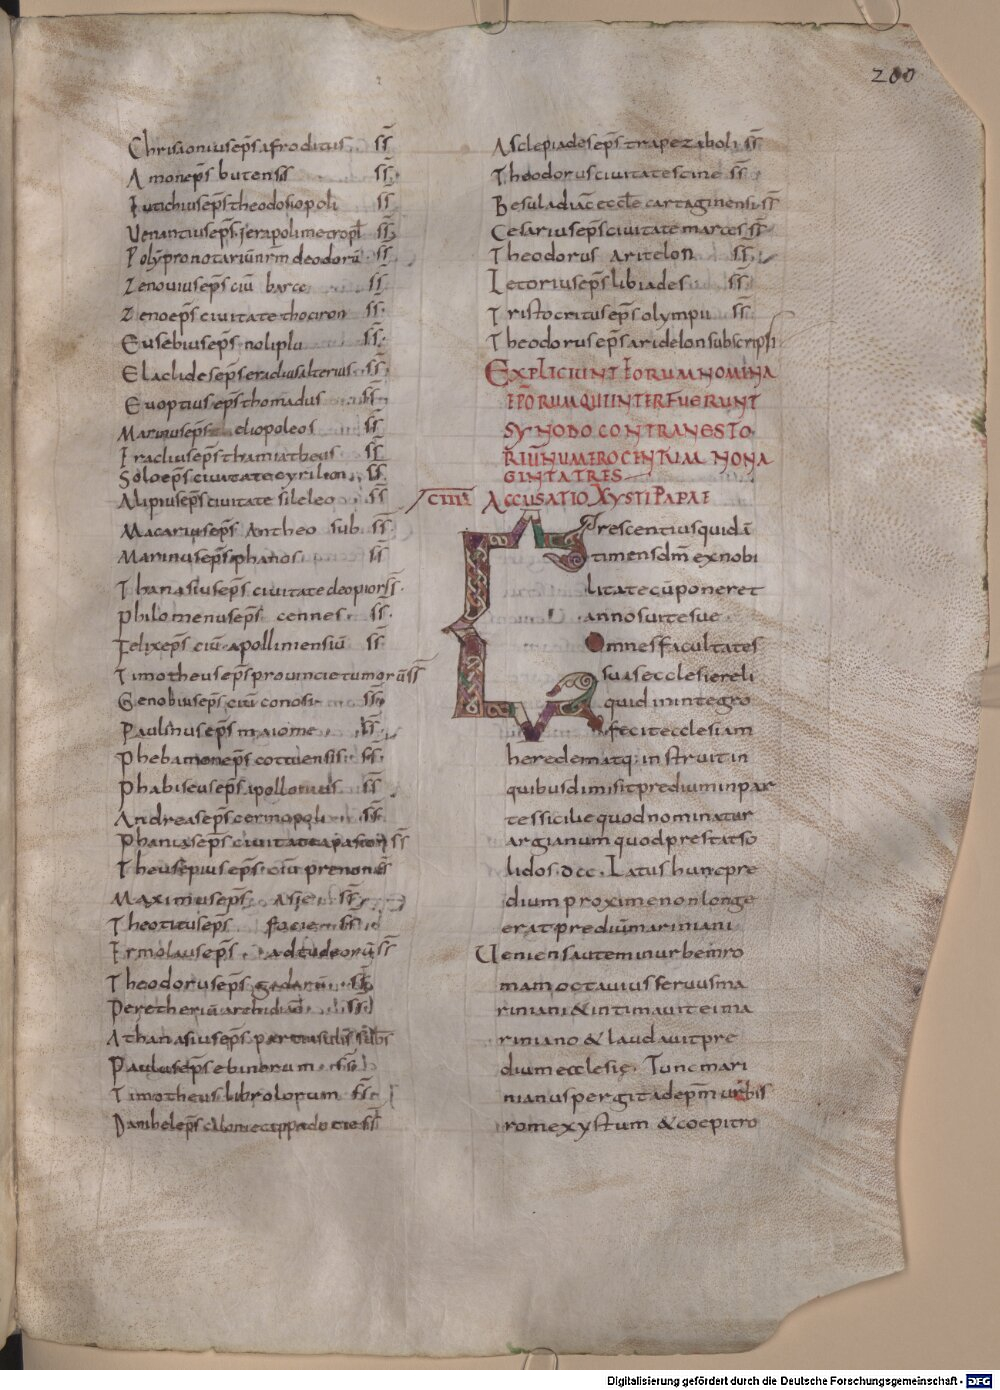 200
Chrisionius ep̄s afroditus ss̄
Amon ep̄s butensis ss̄
Eutichius ep̄s theodosiopoli ss̄
Uenantius ep̄s ierapoli metropl̄ ss̄
ss̄
Zenouius ep̄s ciū barce ss̄
Zeno ep̄s ciuitate thociron ss̄
Eusebius ep̄s noliplu ss̄
Elaclides ep̄s ss̄
Euoptius ep̄s thomadus ss̄
Marinus ep̄s eliopoleos ss̄
Eraclius ep̄s thamiatheus ss̄
Solo ep̄s ciuitate cyrilion ss̄
Alipius ep̄s ciuitate sileleo ss̄
Macarius ep̄s Antheo sub ss̄
Marinus ep̄s phanos ss̄
Thanasius ep̄s ciuitate deopior ss̄
Philomenus ep̄s cennes ss̄
Felix ep̄s ciū apolliniensiū ss̄
Timotheus ep̄s prouincie tumorū ss̄
Genobius ep̄s ciū conosi ss̄
Paulinus ep̄s maiome ss̄
Phebamon ep̄s cottuensis ss̄
Phabiseus ep̄s apollonius ss̄
Andreas ep̄s cermopoli ss̄
Phanias ep̄s ciuitate ss̄
Theusepius ep̄s ciū prenon ss̄
Maximus ep̄s asie ss̄
Theotitus ep̄s ss̄
Ermolaus ep̄s ss̄
Theodorus ep̄s gadarū ss̄
Peretheriū archidiac̄ ss̄
Athanasius ep̄s
Paulus ep̄s ebinorum ss̄
Timotheus librolorum ss̄
ss̄
Asclepiades ep̄s trapezaboli ss̄
Theodorus ciuitatescine ss̄
Besula diac̄ eccl̄e cartaginensi ss̄
Cesarius ep̄s ciuitate marces ss̄
Theodorus aritelon ss̄
Letorius ep̄s libiades ss̄
Tristocritus ep̄s olympu ss̄
Theodorus ep̄s aridelon subscripsi
EXPLICIUNT EORUM NOMINA
EP̄ORUM QUI INTERFUERUNT
SYNODO CONTRA NESTO
RIŪ NUMERO CENTUM NONA
GINTA TRES
CIIII ACCUSATIO XYSTI PAPAE
Crescentius quidā
timens dm̄ ex nobi
litate cū poneret
anno suite sue
Omnes facultates
suas ecclesie reli
quid in integro
fecit ecclesiam
heredem atq; instruit in
quibus dimisit predium in par
tes sicilie quod nominatur
argianum quod prestat so
lidos dcc. Latus hunc pre
dium proxime non longe
erat prediū mariniani
Ueniens autem in urbem ro
mam octauius seruus ma
riniani & intimauit ei ma
riniano & laudauit pre
dium ecclesię. Tunc mari
nianus pergit ad ep̄m urbis
rome xystum & coepit ro
Digitalisierung gefördert durch die Deutsche Forschungsgemeinschaft - DFG